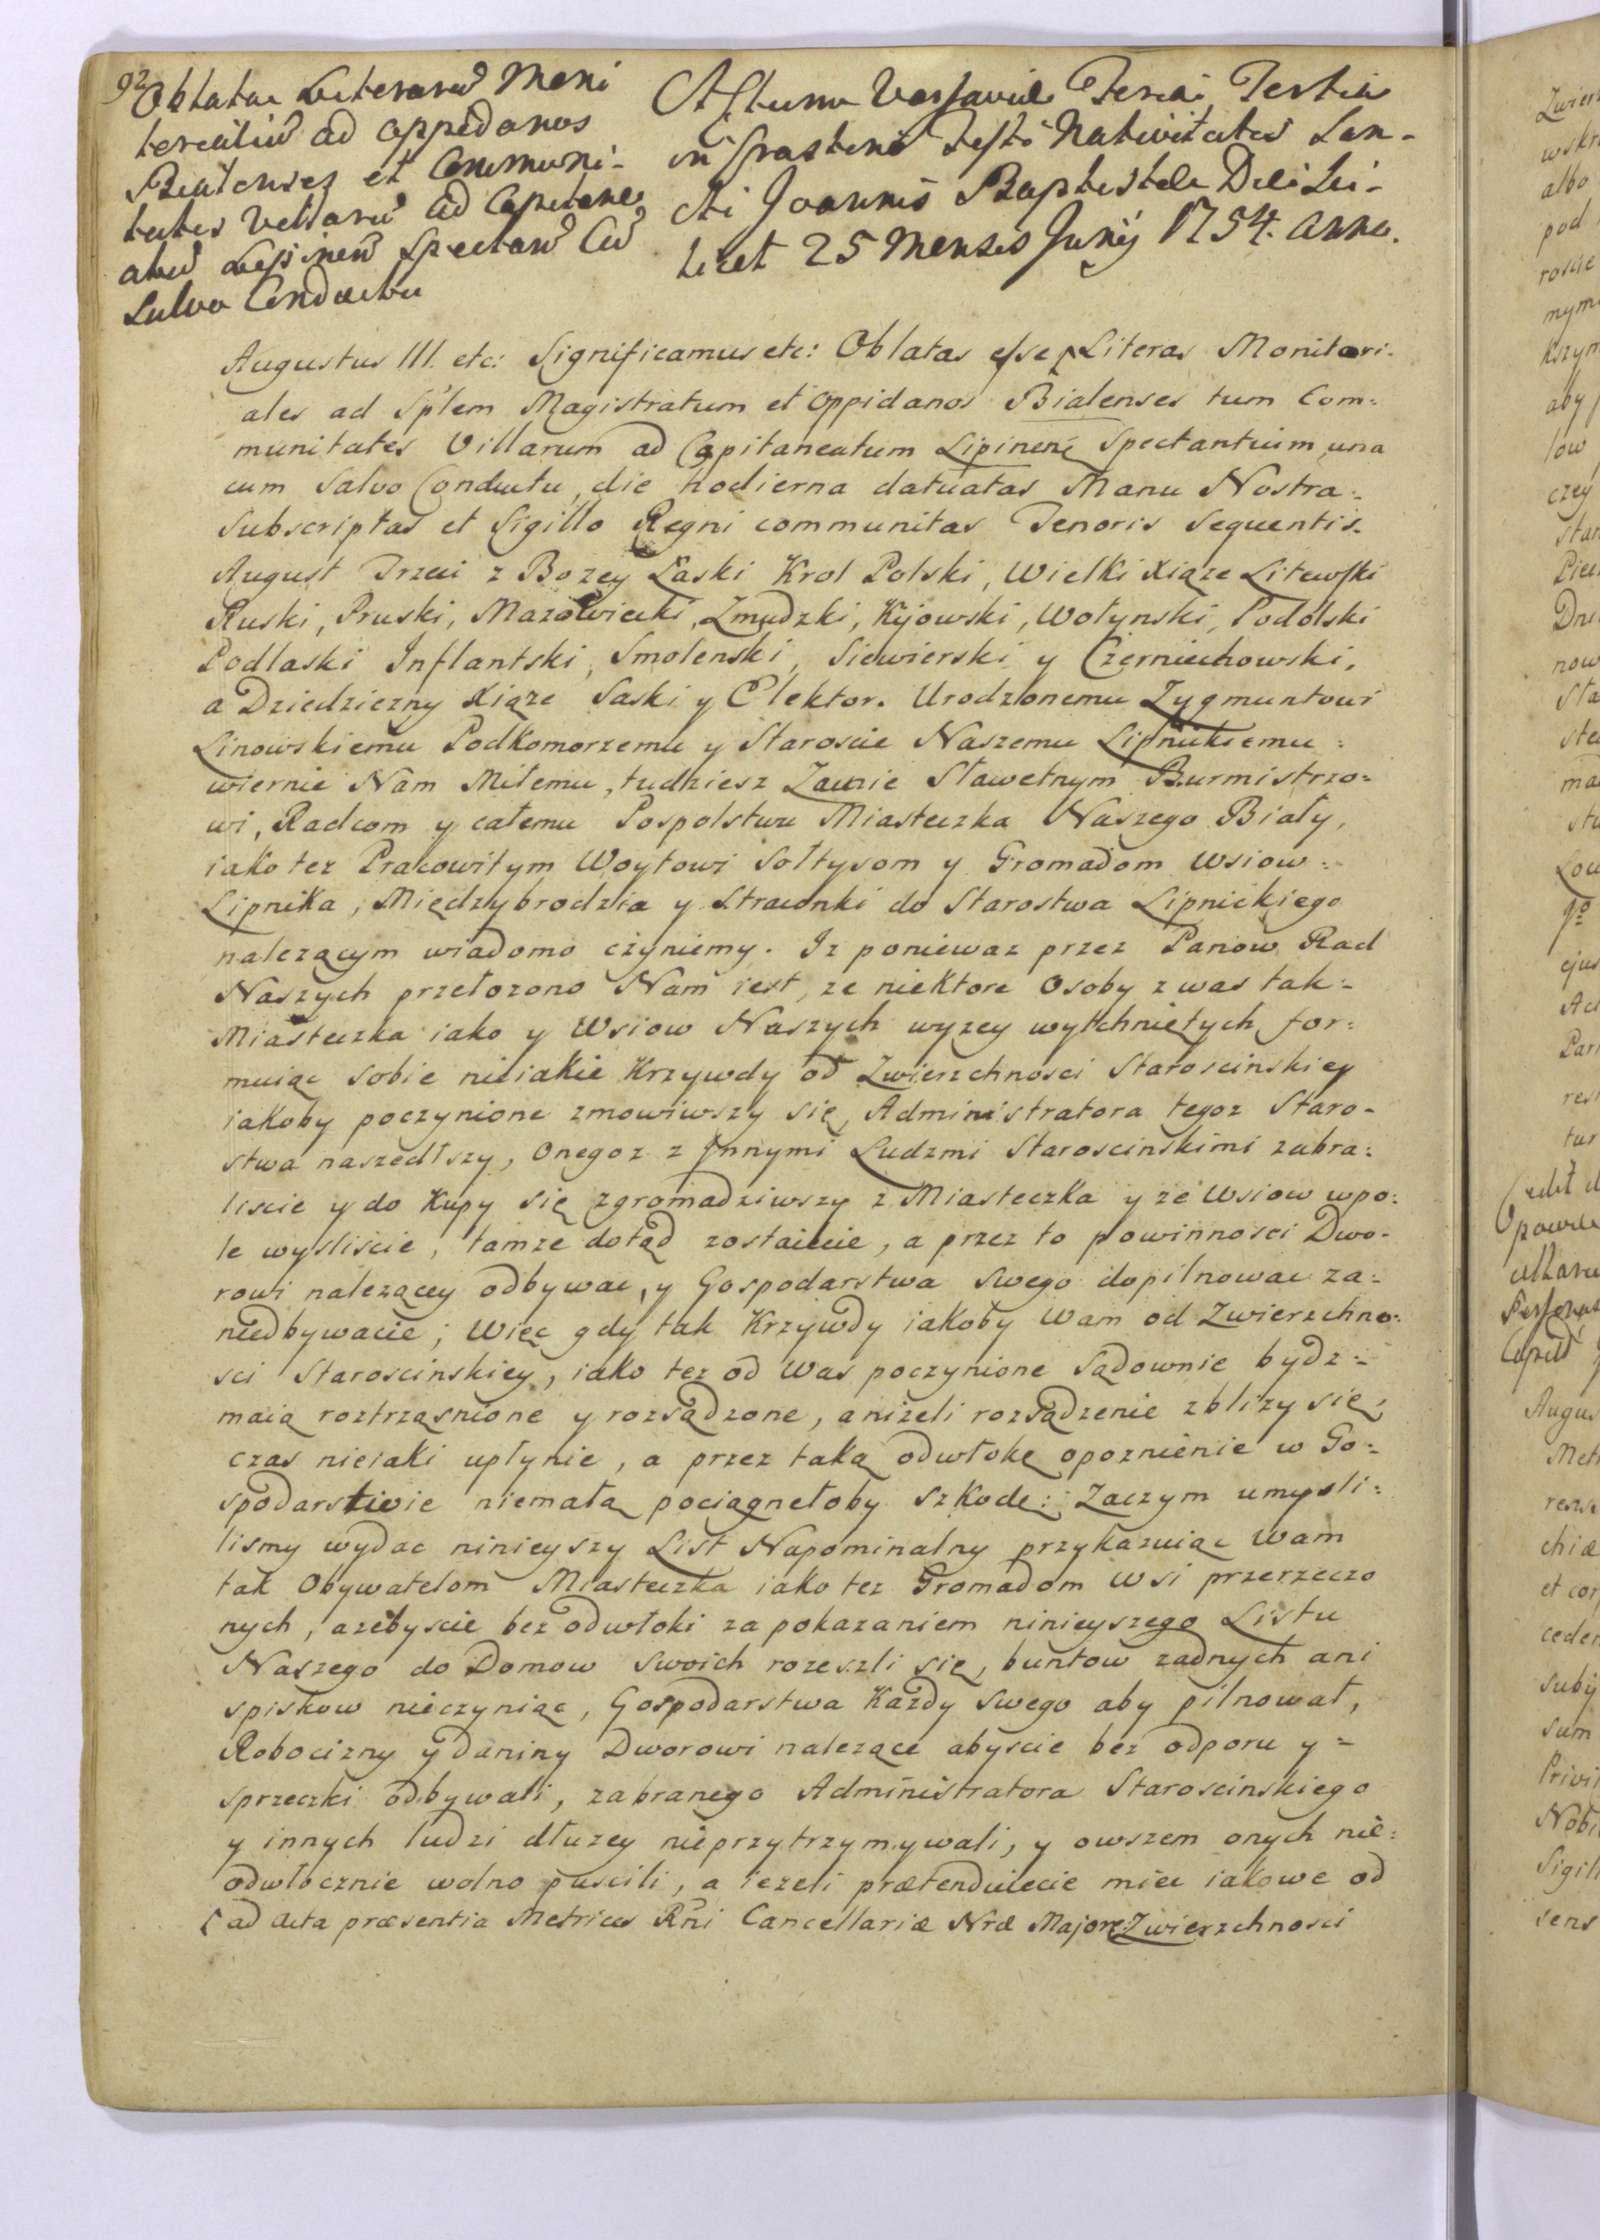 92
Oblatae Literarũ Moni
torialiũ ad oppidanos
Bialenses et Communi-
tates Villarũ ad Capitane
atũ Lipinen̄ Spectan̄ Cũ
Salvo Conductu
Actum Varsaviae Feria Tertia
in Crastino Festi Nativitatis San-
cti Joannis Baptistae Die Sci-
licet 25 Mensis Junij 1754. anno.
Augustus III. etc: Significamus etc: Oblatas esse Literas Monitori-
ales ad Sp̃lem Magistratum et oppidanos Bialenses tum Com:
munitates Villarum ad Capitaneatum Lipinen̄ Spectantium una
cum Salvo Conductu, die hodierna datuatas Manu Nostra:
Subscriptas et Sigillo Regni communitas Tenoris Sequentis.
August Trzeci z Bozey Łaski Krol Polski, Wielki Xiąze Litewski
Ruski, Pruski, Mazowiecki, Zmudzki, Kijowski, Wołynski, Podolski
Podlaski Inflantski, Smolenski, Siewierski y Czerniechowski,
a Dziedziczny Xiąze Saski y Elektor. Urodzonemu Zygmuntowi
Linowskiemu Podkomorzemu y Staroscie Naszemu Lipnickiemu:
wiernie Nam Miłemu, tudziesz Zacnie Sławetnym Burmistrzo:
wi, Radcom y całemu Pospolstwu Miasteczka Naszego Biały,
iako tez Pracowitym Woytowi Sołtysom y Gromadom Wsiow:
Lipnika, Międzybrodzia y Straconki do Starostwa Lipnickiego
nalezącym wiadomo czyniemy. Iz poniewaz przez Panow Rad
Naszych przełozono Nam iest, ze niektore Osoby z was tak:
Miasteczka iako y Wsiow Naszych wyzey wytchniętych for:
muiąc sobie nieiakie Krzywdy od Zwierzchnosci Staroscinskiey
iakoby poczynione zmowiwszy się, Administratora tegoz Staro-
stwa naszedłszy, Onegoz z Innymi Ludzmi Staroscinskimi zabra:
liscie y do Kupy się zgromadziwszy z Miasteczka y ze Wsiow wpo:
le wysliscie, tamze dotąd zostaiecie, a przez to powinnosci Dwo-
rowi nalezącey odbywac, y Gospodarstwa Swego dopilnowac za-
niedbywacie; Więc gdy tak Krzywdy iakoby Wam od Zwierzchno:
sci Staroscinskiey, iako tez od Was poczynione Sądownie bydz:
maią roztrząsnione y rozsądzone, anizeli rozsądzenie zblizy się,
czas nieiaki upłynie, a przez taką odwłokę opoznienie w Go:
spodarstwie niemałą pociągnełoby szkodę: Zaczym umysli:
lismy wydac ninieyszy List Napominalny przykazuiąc Wam
tak Obywatelom Miasteczka iako tez Gromadom Wsi przerzeczo
nych, azebyscie bez odwłoki za pokazaniem ninieyszego Listu
Naszego do Domow Swoich rozeszli się, buntow zadnych ani
spiskow nieczyniąc, Gospodarstwa Kazdy Swego aby pilnował,
Robocizny y daniny Dworowi nalezące abyscie bez odporu y=
sprzeczki odbywali, zabranego Administratora Staroscinskiego
y innych ludzi dłuzey nieprzytrzymywali, y owszem onych nie:
odwłocznie wolno puscili, a iezeli prætenduiecie miec iakowe od
ad Acta præsentia Metrices Rñi Cancellariæ Nræ Majore Zwierzchnosci